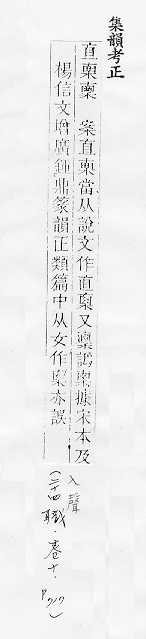 集韻考正
直 案直 當从說文作直 又 譌 據宋本及
楊信文增廣鐘鼎篆韻正類篇中从女作 亦誤
入聲
(二十四職·卷十·